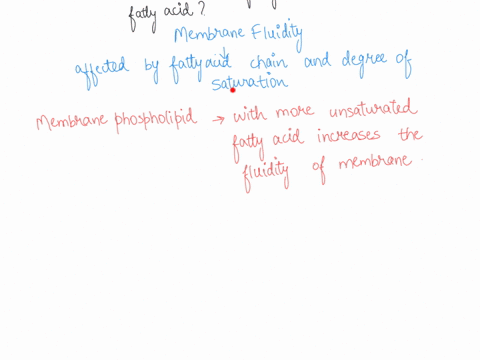 fatty acid?
Membrane Fluidity
affected by fatty acid chain and degree of
saturation
Membrane phospholipid → with more unsaturated
fatty acid increases the
fluidity of membrane.